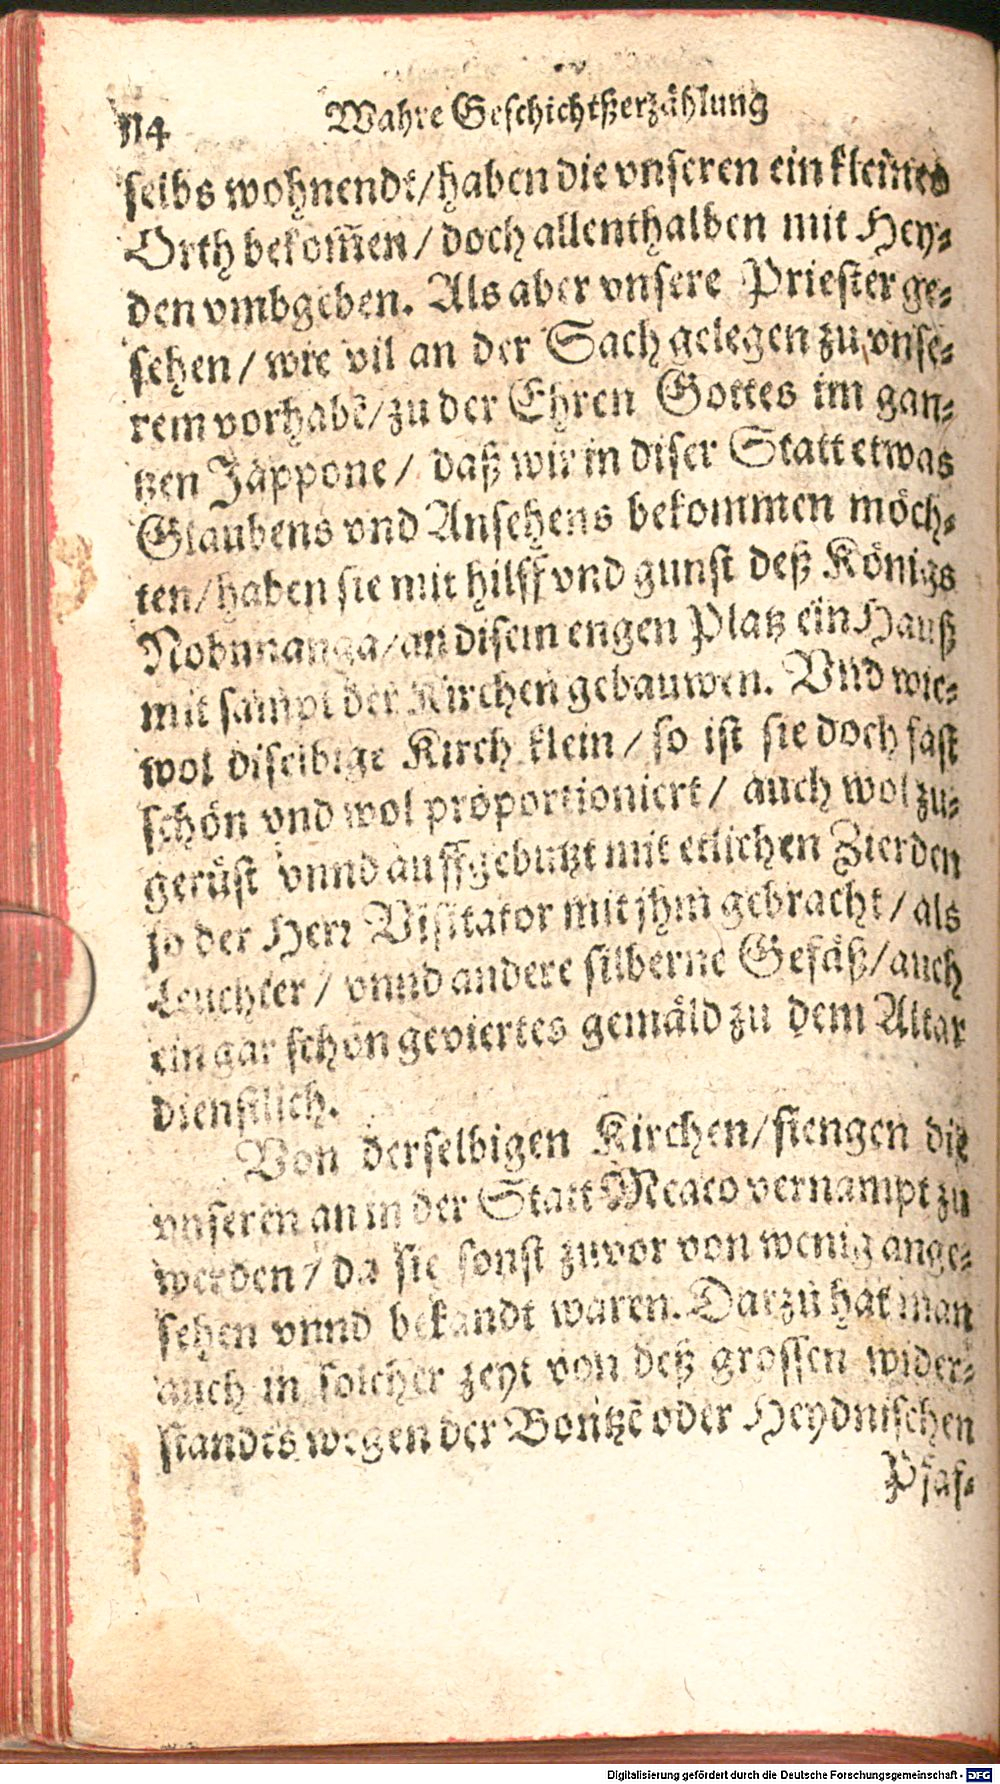 114 Wahre Geschichtßerzählung
selbs wohnendt/haben die vnseren ein kleines
Orth bekom̃en/ doch allenthalben mit Hey⸗
den vmbgeben. Als aber vnsere Priester ge⸗
sehen/ wie vil an der Sach gelegen zu vnse⸗
rem vorhabẽ/zu der Ehren Gottes im gan⸗
tzen Jáppone/ daß wir in diser Statt etwas
Glaubens vnd Ansehens bekommen möch⸗
ten/haben sie mit hilff vnd gunst deß Königs
Nobunanga/an disem engen Platz ein Hauß
mit sampt der Kirchen gebauwen. Vnd wie⸗
wol diselbige Kirch klein/ so ist sie doch fast
schön vnd wol proportioniert/ auch wol zu⸗
gerüst vnnd auffgebutzt mit etlichen Zierden
so der Herr Visitator mit jhm gebracht/ als
Leuchter/ vnnd andere silberne Gefäß/auch
ein gar schön geviertes gemäld zu dem Altar
dienstlich.
Von derselbigen Kirchen/fiengen die
vnseren an in der Statt Meaco vernampt zu
werden/ da sie sonst zuvor von wenig ange⸗
sehen vnnd bekandt waren. Darzu hat man
auch in solcher zeyt von deß grossen wider⸗
standts wegen der Bontzẽ oder Heydnischen
Pfaf⸗
Digitalisierung gefördert durch die Deutsche Forschungsgemeinschaft - DFG